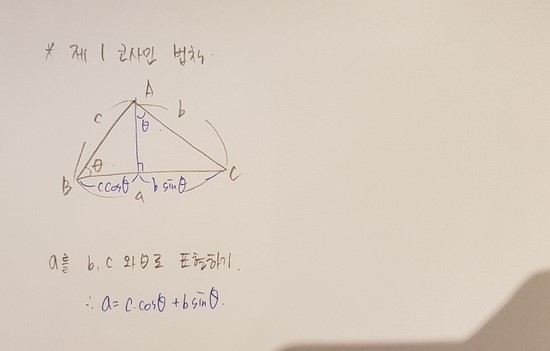 * 제 1 코사인 법칙.
A
c
b
θ
θ
B
c cosθ
b sinθ
C
a
a를 b, c 와 θ로 표현하기.
∴ a = c·cosθ + b sinθ.